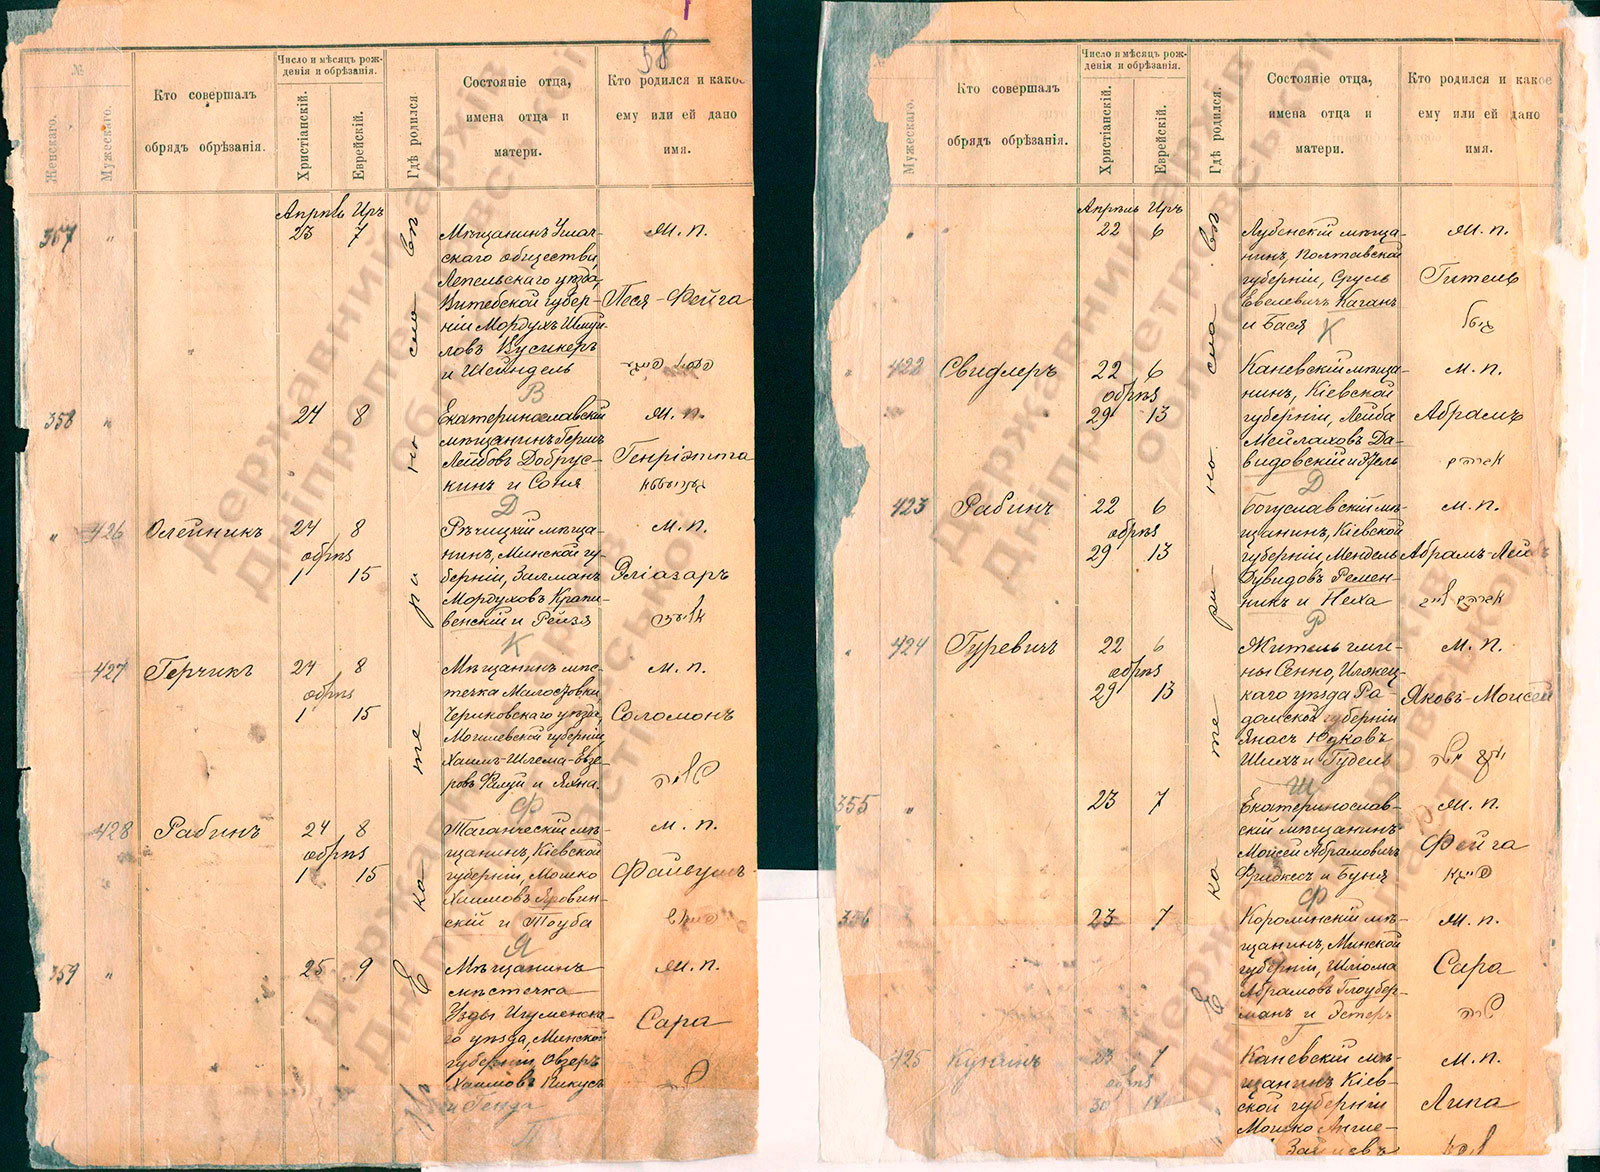 58
№
Женскаго.
Мужескаго.
Кто совершалъ
обрядъ обрѣзанія.
Число и мѣсяцъ рож-
денія и обрѣзанія.
Христіанскій.
Еврейскій.
Гдѣ родился.
Состояніе отца,
имена отца и
матери.
Кто родился и какое
ему или ей дано
имя.
Апрѣль Иръ
357 " 23 7
Мѣщанинъ
скаго общества,
Лепельскаго уѣзда,
Витебской губер-
ніи Мордухъ Шмуй-
ловъ Кусикеръ
и Шейндель
В
М. п.
Песя-Фейга
358 " 24 8
Екатеринославскій
мѣщанинъ Герш
Лейбовъ Добрус-
кинъ и Соня
Д
М. п.
Генріэтта
" 426 Олейникъ 24 8
обрѣз
1 15
Рѣчицкій мѣща-
нинъ, Минской гу-
берніи, Залманъ
Мордуховъ Крапи-
венскій и Рейзя
К
м. п.
Эліазаръ
427 Герчикъ 24 8
обрѣз
1 15
Мѣщанинъ мѣс-
течка
Чериковскаго уѣзда,
Могилевской губерніи
Хаимъ-Шлема-
ровъ и Яхна.
Ф
м. п.
Соломонъ
428 Рабинъ 24 8
обрѣз
1 15
Таганческій мѣ-
щанинъ, Кіевской
губерніи, Мошко
Хаимовъ Яровин-
скій и Тоуба
Я
м. п.
Файвушъ
359 " 25 9
Мѣщанинъ
мѣстечка
Узды Игуменска-
го уѣзда, Минской
губерніи,
Хаимовъ Пикусъ
и Генда
П
М. п.
Сара
въ Екатеринославѣ
Мужескаго.
Кто совершалъ
обрядъ обрѣзанія.
Число и мѣсяцъ рож-
денія и обрѣзанія.
Христіанскій.
Еврейскій.
Гдѣ родился.
Состояніе отца,
имена отца и
матери.
Кто родился и какое
ему или ей дано
имя.
Апрѣль Иръ
22 6
Лубенскій мѣща-
нинъ, Полтавской
губерніи, Сруль
Евелевичъ Каганъ
и Бася
К
М. п.
Гитель
גיטל
422 Свидлеръ 22 6
обрѣз
29 13
Каневскій мѣща-
нинъ, Кіевской
губерніи, Лейба
Мейлаховъ Да-
видовскій и Эдель
Д
м. п.
Абрамъ
אברהם
423 Рабинъ 22 6
обрѣз
29 13
Богуславскій мѣ-
щанинъ, Кіевской
губерніи, Мендель
Дувидовъ Ремен-
никъ и Неха
Р
м. п.
Абрамъ-Лейбъ
אברהם לייב
424 Гуревичъ 22 6
обрѣз
29 13
Житель гми-
ны Сенно, Илжец-
каго уѣзда Ра-
домской губерніи
Янасъ Юдковъ
Шихъ и Гудель
Ш
м. п.
Яковъ-Моисей
יעקב משה
355 " 23 7
Екатеринослав-
скій мѣщанинъ
Моисей Абрамовичъ
и Буня
Ф
м. п.
Фейга
פייגא
356 23 7
мѣ-
щанинъ, Минской
губерніи, Шліома
Абрамовъ Глоубер-
манъ и Эстеръ
Г
м. п.
Сара
שרה
425 23 7
обрѣз
30 14
Каневскій мѣ-
щанинъ Кіев-
ской губерніи
Мошко
Зайцевъ
м. п.
въ Екатеринославѣ
Державний архів
Дніпропетровської
області